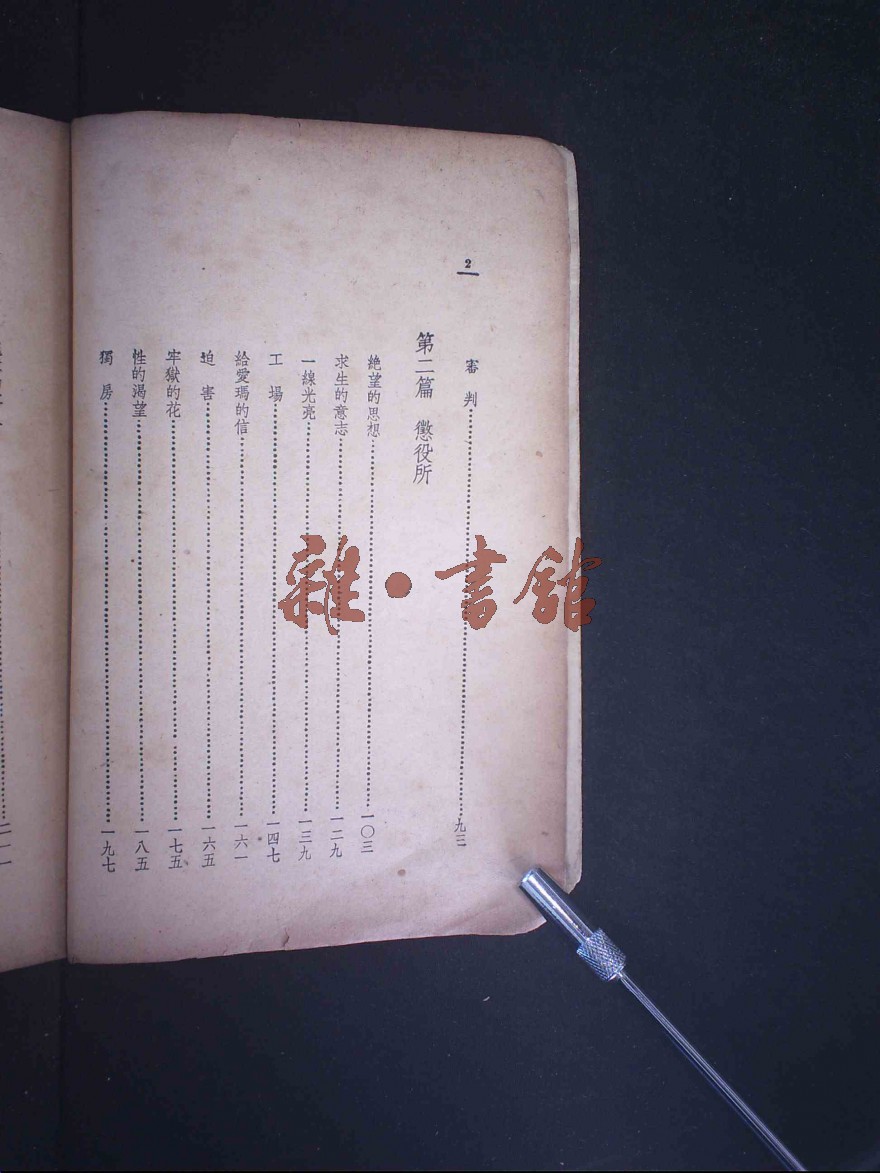 2
審判……九三
第二篇 懲役所
絶望的思想……一〇三
求生的意志……一二九
一線光亮……一三九
工場……一四七
給愛瑪的信……一六一
迫害……一六五
牢獄的花……一七五
性的渴望……一八五
獨房……一九七
雜·書館